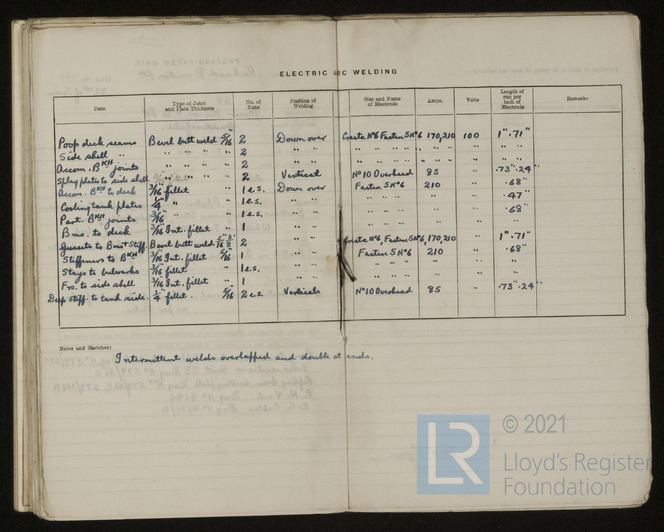 ELECTRIC ARC WELDING
Item | Type of Joint and Plate Thickness | No. of Runs | Position of Welding | Size and Name of Electrode | Amps. | Volts | Length of run per inch of Electrode | Remarks
Poop deck seams | Bevel butt weld 5/16" | 2 | Down over | Cresta No 6 Fastex 5 No 6 | 170,210 | 100 | 1" .71"
Side shell " | " " " " | 2 | " " | " " " | " " | " | " "
Accom. BKH joints | " " " " | 2 | " " | " " " | " " | " | " "
Splay plates to side shell | " " " " | 2 | Vertical | No 10 Overhead | 85 | " | .73" .24"
Accom. BKH to deck | 3/16 fillet | 1 e.s. | Down over | Fastex 5 No 6 | 210 | " | .68"
Cooling tank plates | 1/4 " | 1 e.s. | " " | " " | " | " | .47"
Part. BKH joints | 3/16 " | 1 e.s. | " " | " " | " | " | .68"
Bms. to deck | 3/16 Int. fillet | 1 | " " | " " | " | " | "
Gussets to Bms & Stiff. | Bevel butt weld 5/16 3/8 | 2 | " " | Cresta No 6, Fastex 5 No 6 | 170,210 | " | 1" .71"
Stiffeners to BKH | 3/16 Int. fillet 5/16 | 1 | " " | Fastex 5 No 6 | 210 | " | .68"
Stays to bulwarks | 3/16 fillet | 1 e.s. | " " | " " | " | " | "
Frs. to side shell | 3/16 Int. fillet | 1 | " " | " " | " | " | "
Deep Stiff. to tank side. | 1/4 fillet. 5/16 | 2 e.s. | Verticals | No 10 Overhead | 85 | " | .73" .24"
Notes and Sketches:
Intermittent welds overlapped and double at ends.
LR
© 2021
Lloyd's Register
Foundation